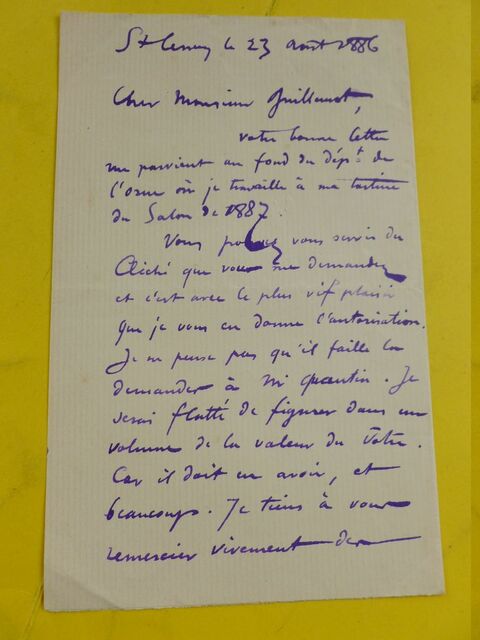 le 23 août 1886
Cher Monsieur Guillaumot,
votre bonne lettre
me parvient au fond du dép.t de
l'Orne où je travaille à ma tartine
du Salon de 1887.
Vous pouvez vous servir du
Cliché que vous me demandez
et c'est avec le plus vif plaisir
que je vous en donne l'autorisation.
Je ne pense pas qu'il faille la
demander à Mr Quantin. Je
serai flatté de figurer dans un
volume de la valeur du Vôtre.
Car il doit en avoir, et
beaucoup. Je tiens à vous
remercier vivement de